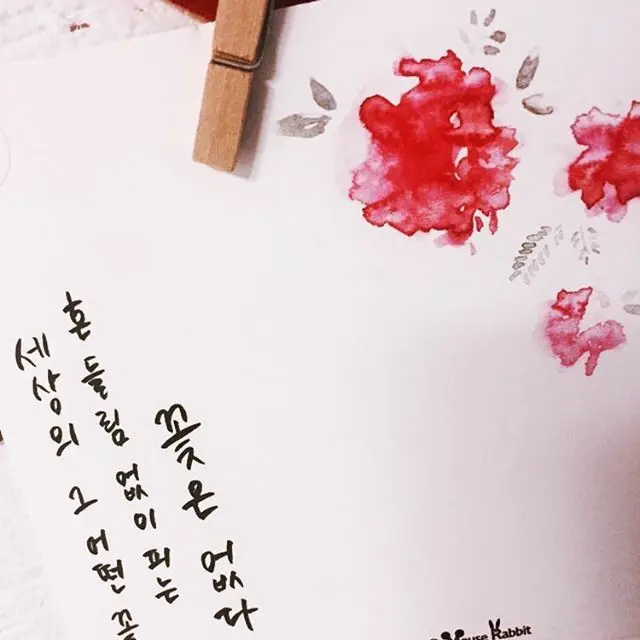 세상의 그 어떤
흔들림 없이 피는
꽃은 없다
Rabbit